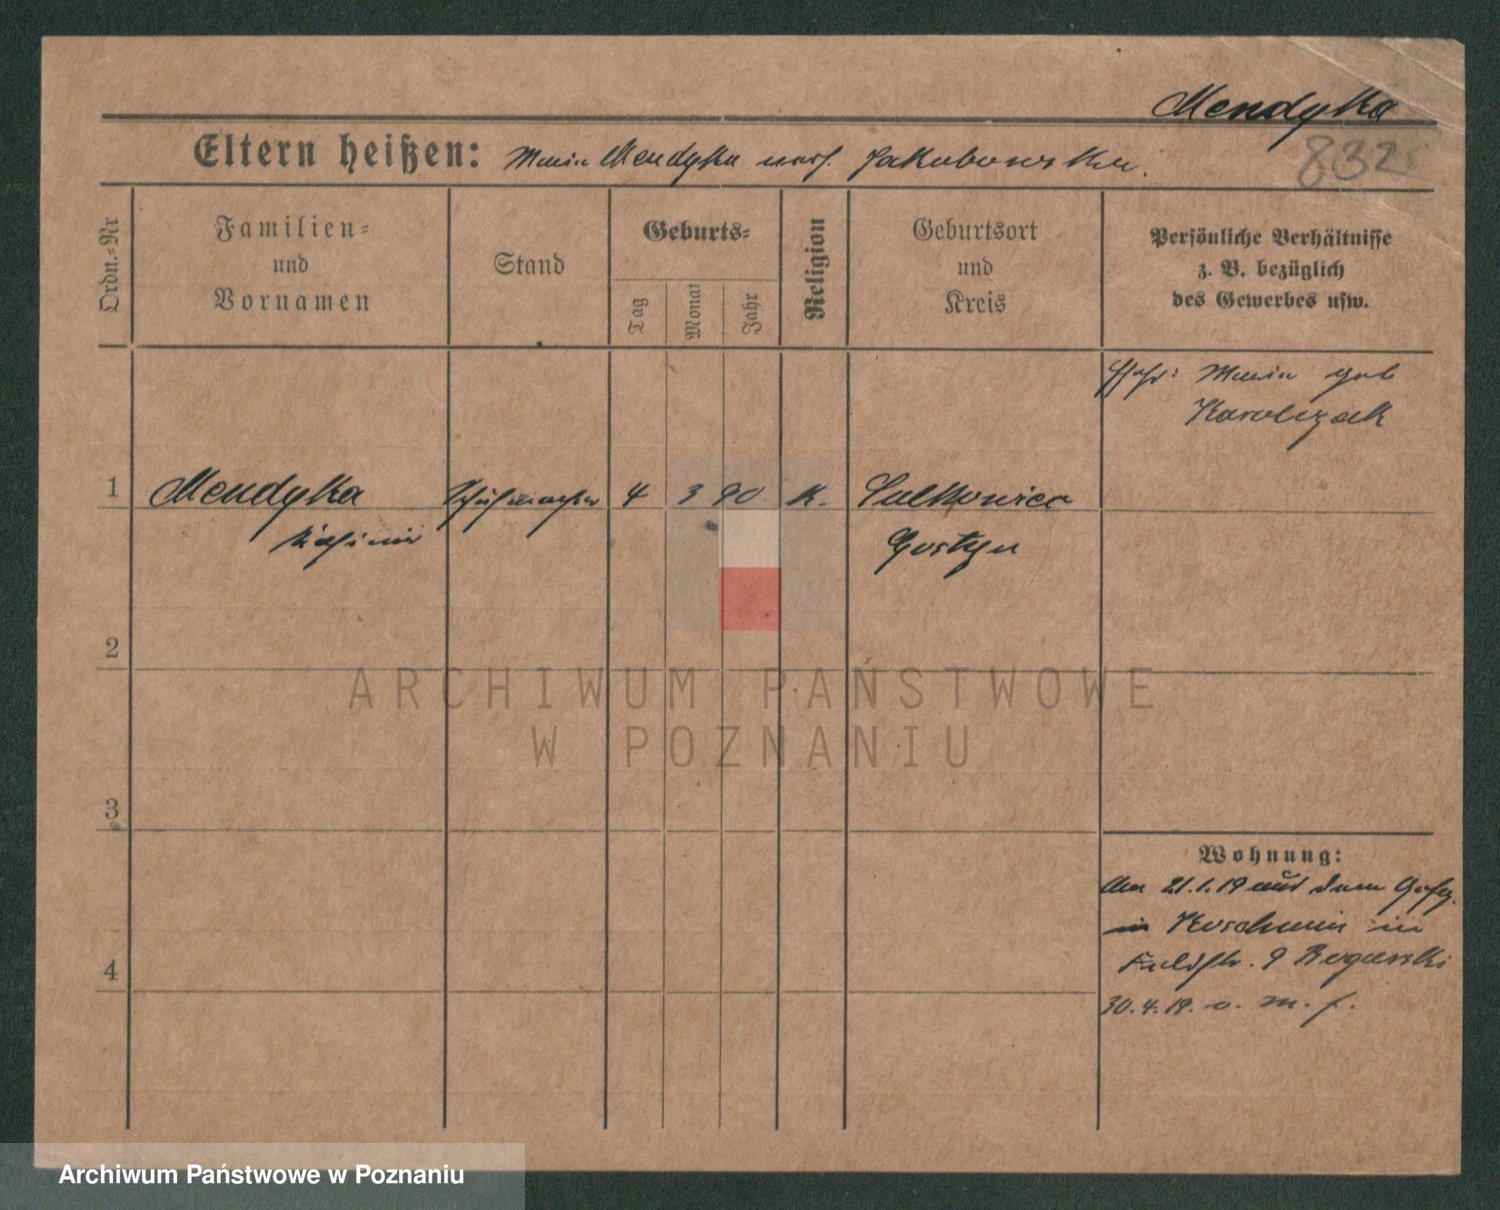 Mendyka
Eltern heißen: Maria Mendyka Jakubowska.
832
Ordn.-Nr
Familien-
und
Vornamen
Stand
Geburts-
Tag
Monat
Jahr
Religion
Geburtsort
und
Kreis
Persönliche Verhältnisse
z. B. bezüglich
des Gewerbes usw.
Maria geb
Karolczak
1 Mendyka Schuhmacher 4 3 90 K.
Kasimir Gostyn
2
3
4
Wohnung:
21.1.19 aus dem
in Koschmin in
Feldstr. 9
30.4.19.
ARCHIWUM PAŃSTWOWE
W POZNANIU
Archiwum Państwowe w Poznaniu